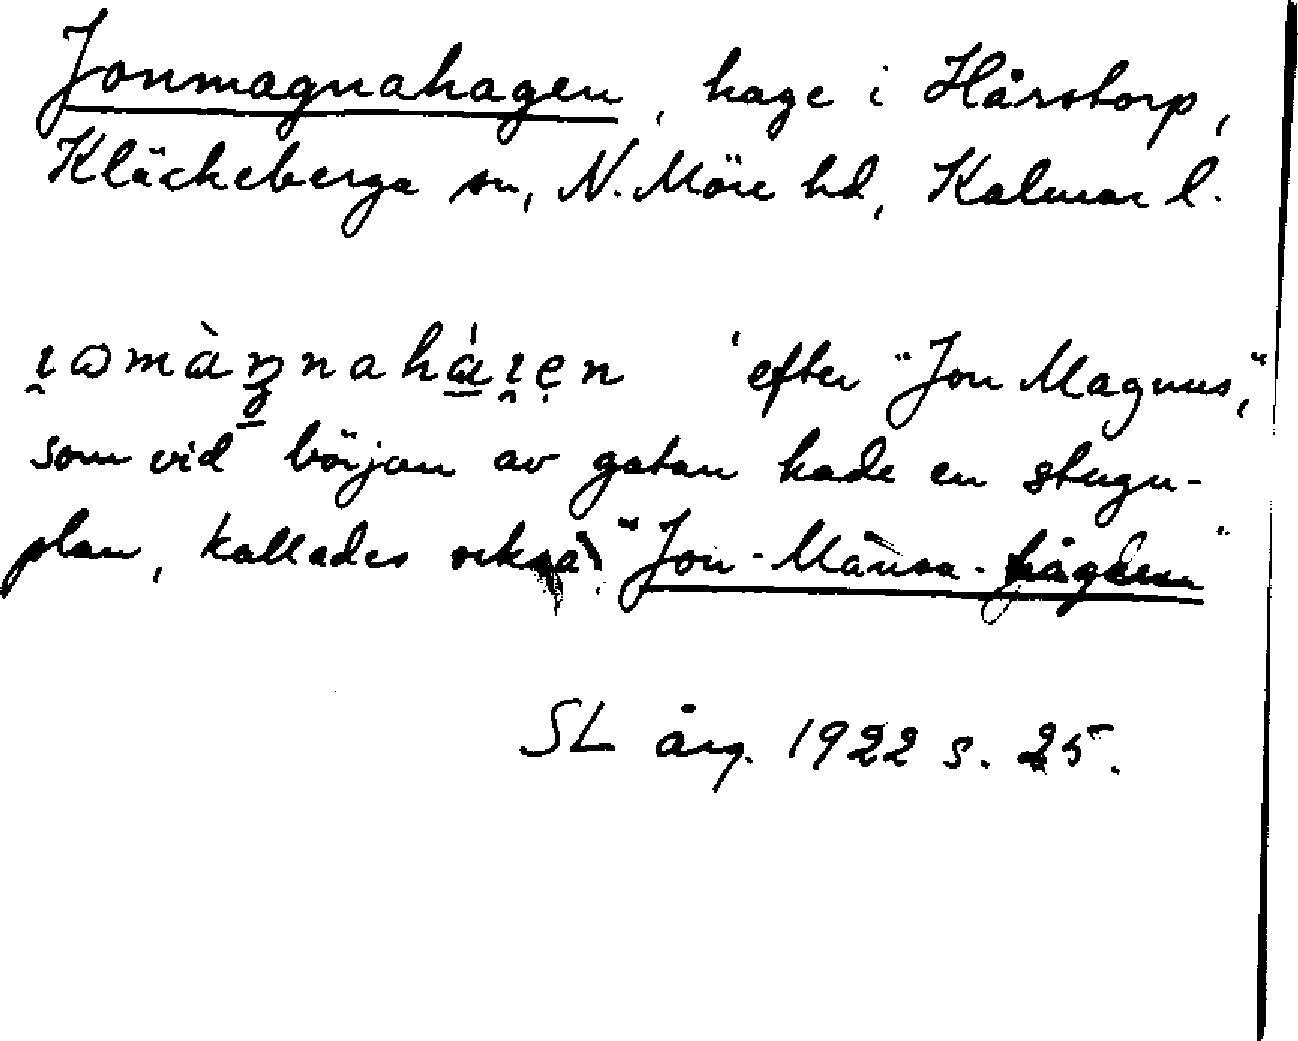 Jonmagnahagen, hage i Hårstorp,
Kläckeberga sn, N. Möre hd, Kalmar l.
ɪ̯ωmàŋnahá̱ɪ̯ẹn 'efter "Jon Magnus,"
som vid början av gatan hade en stugu-
plan, kallades också "Jon-Månsa-
SL årg. 1922 s. 25.